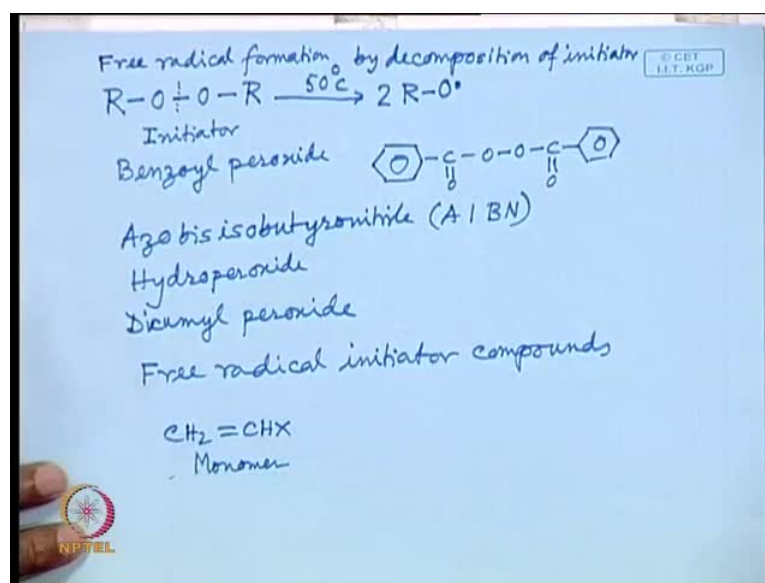 Free radical formation by decomposition of initiator
© CET
I.I.T. KGP
R-O-O-R 50°C → 2 R-O•
Initiator
Benzoyl peroxide -C-O-O-C-
O O
Azobisisobutyronitrile (AIBN)
Hydroperoxide
Dicumyl peroxide
Free radical initiator compounds
CH2=CHX
Monomer
NPTEL